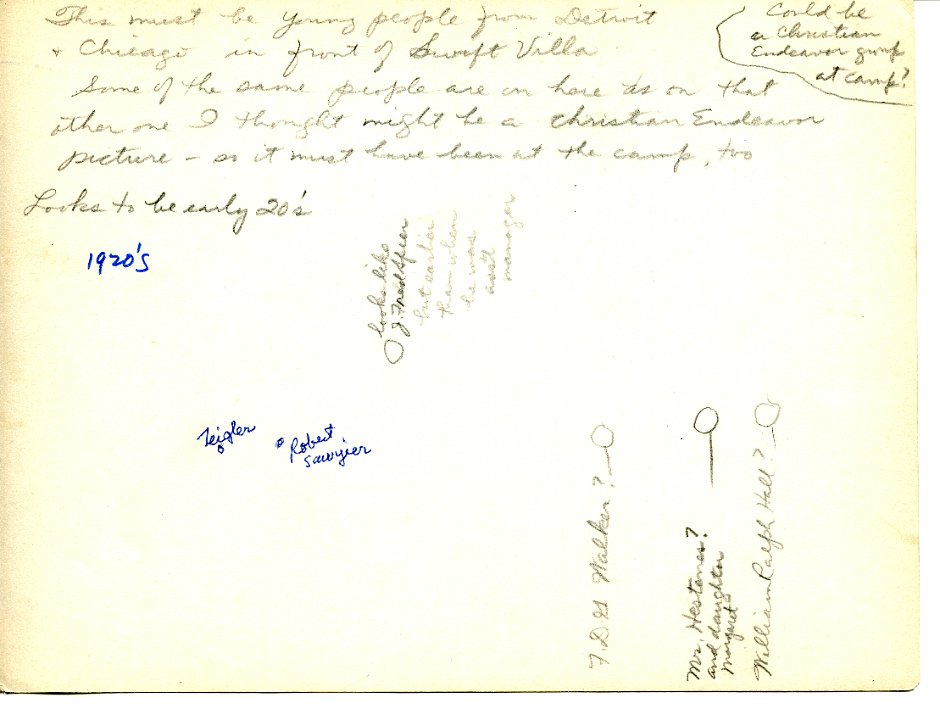 This must be young people from Detroit
+ Chicago in front of Swift Villa
Some of the same people are in here as on that
other one I thought might be a Christian Endeavor
picture - so it must have been at the camp, too
Could be
a Christian
Endeavor group
at camp?
Looks to be early 20's
1920's
looks like
J. Fred Speer
but earlier
than when
he was
asst
manager
Zeigler
Robert
Sawyier
F.D.G. Walker?
Mr. Hestenes?
and daughter
Margaret
William Ralph Hall?